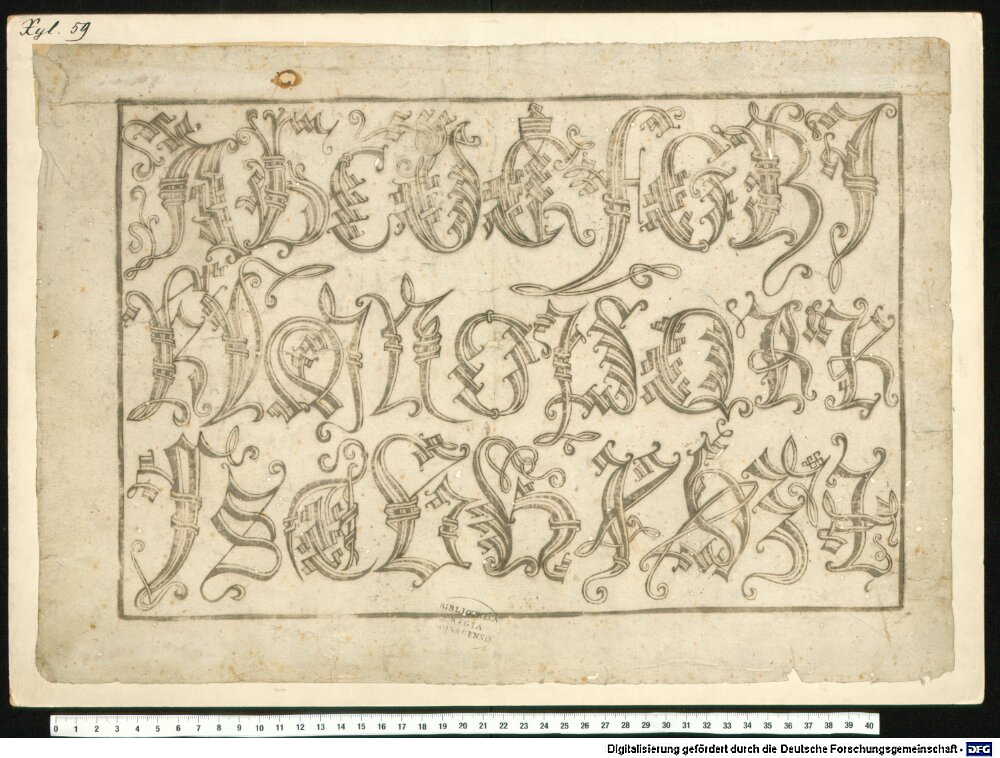 Xyl. 59
A B C D E F G H J
K L M N O P Q R R
S T V W X Y Z
BIBLIOTHECA
REGIA
MONACENSIS
0 1 2 3 4 5 6 7 8 9 10 11 12 13 14 15 16 17 18 19 20 21 22 23 24 25 26 27 28 29 30 31 32 33 34 35 36 37 38 39 40
Digitalisierung gefördert durch die Deutsche Forschungsgemeinschaft - DFG